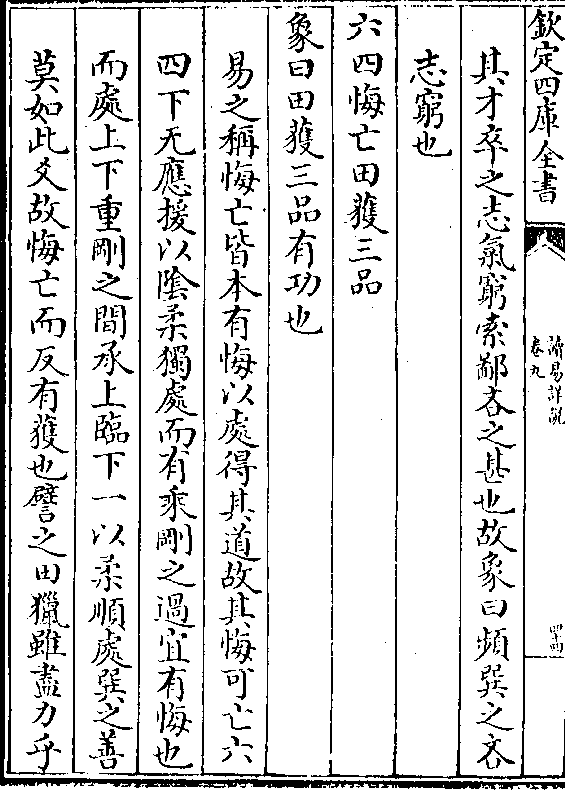 欽定四庫全書
讀易詳說
卷九
四十四
其才卒之志氣窮索鄙吝之甚也故象曰頻巽之吝
志窮也
六四悔亡田獲三品
象曰田獲三品有功也
易之稱悔亡皆本有悔以處得其道故其悔可亡六
四下无應援以隂柔獨處而有乘剛之過宜有悔也
而處上下重剛之間承上臨下一以柔順處巽之善
莫如此爻故悔亡而反有獲也譬之田獵雖盡力乎